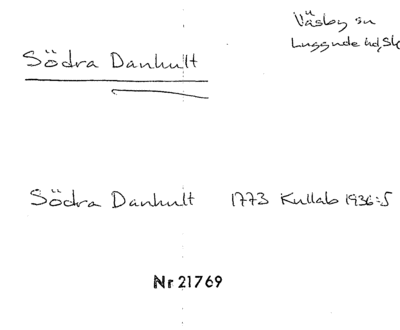 Väsby sn
Luggude hd, Sk
Södra Danhult
Södra Danhult 1773 Kullab 1936:5
Nr 21769